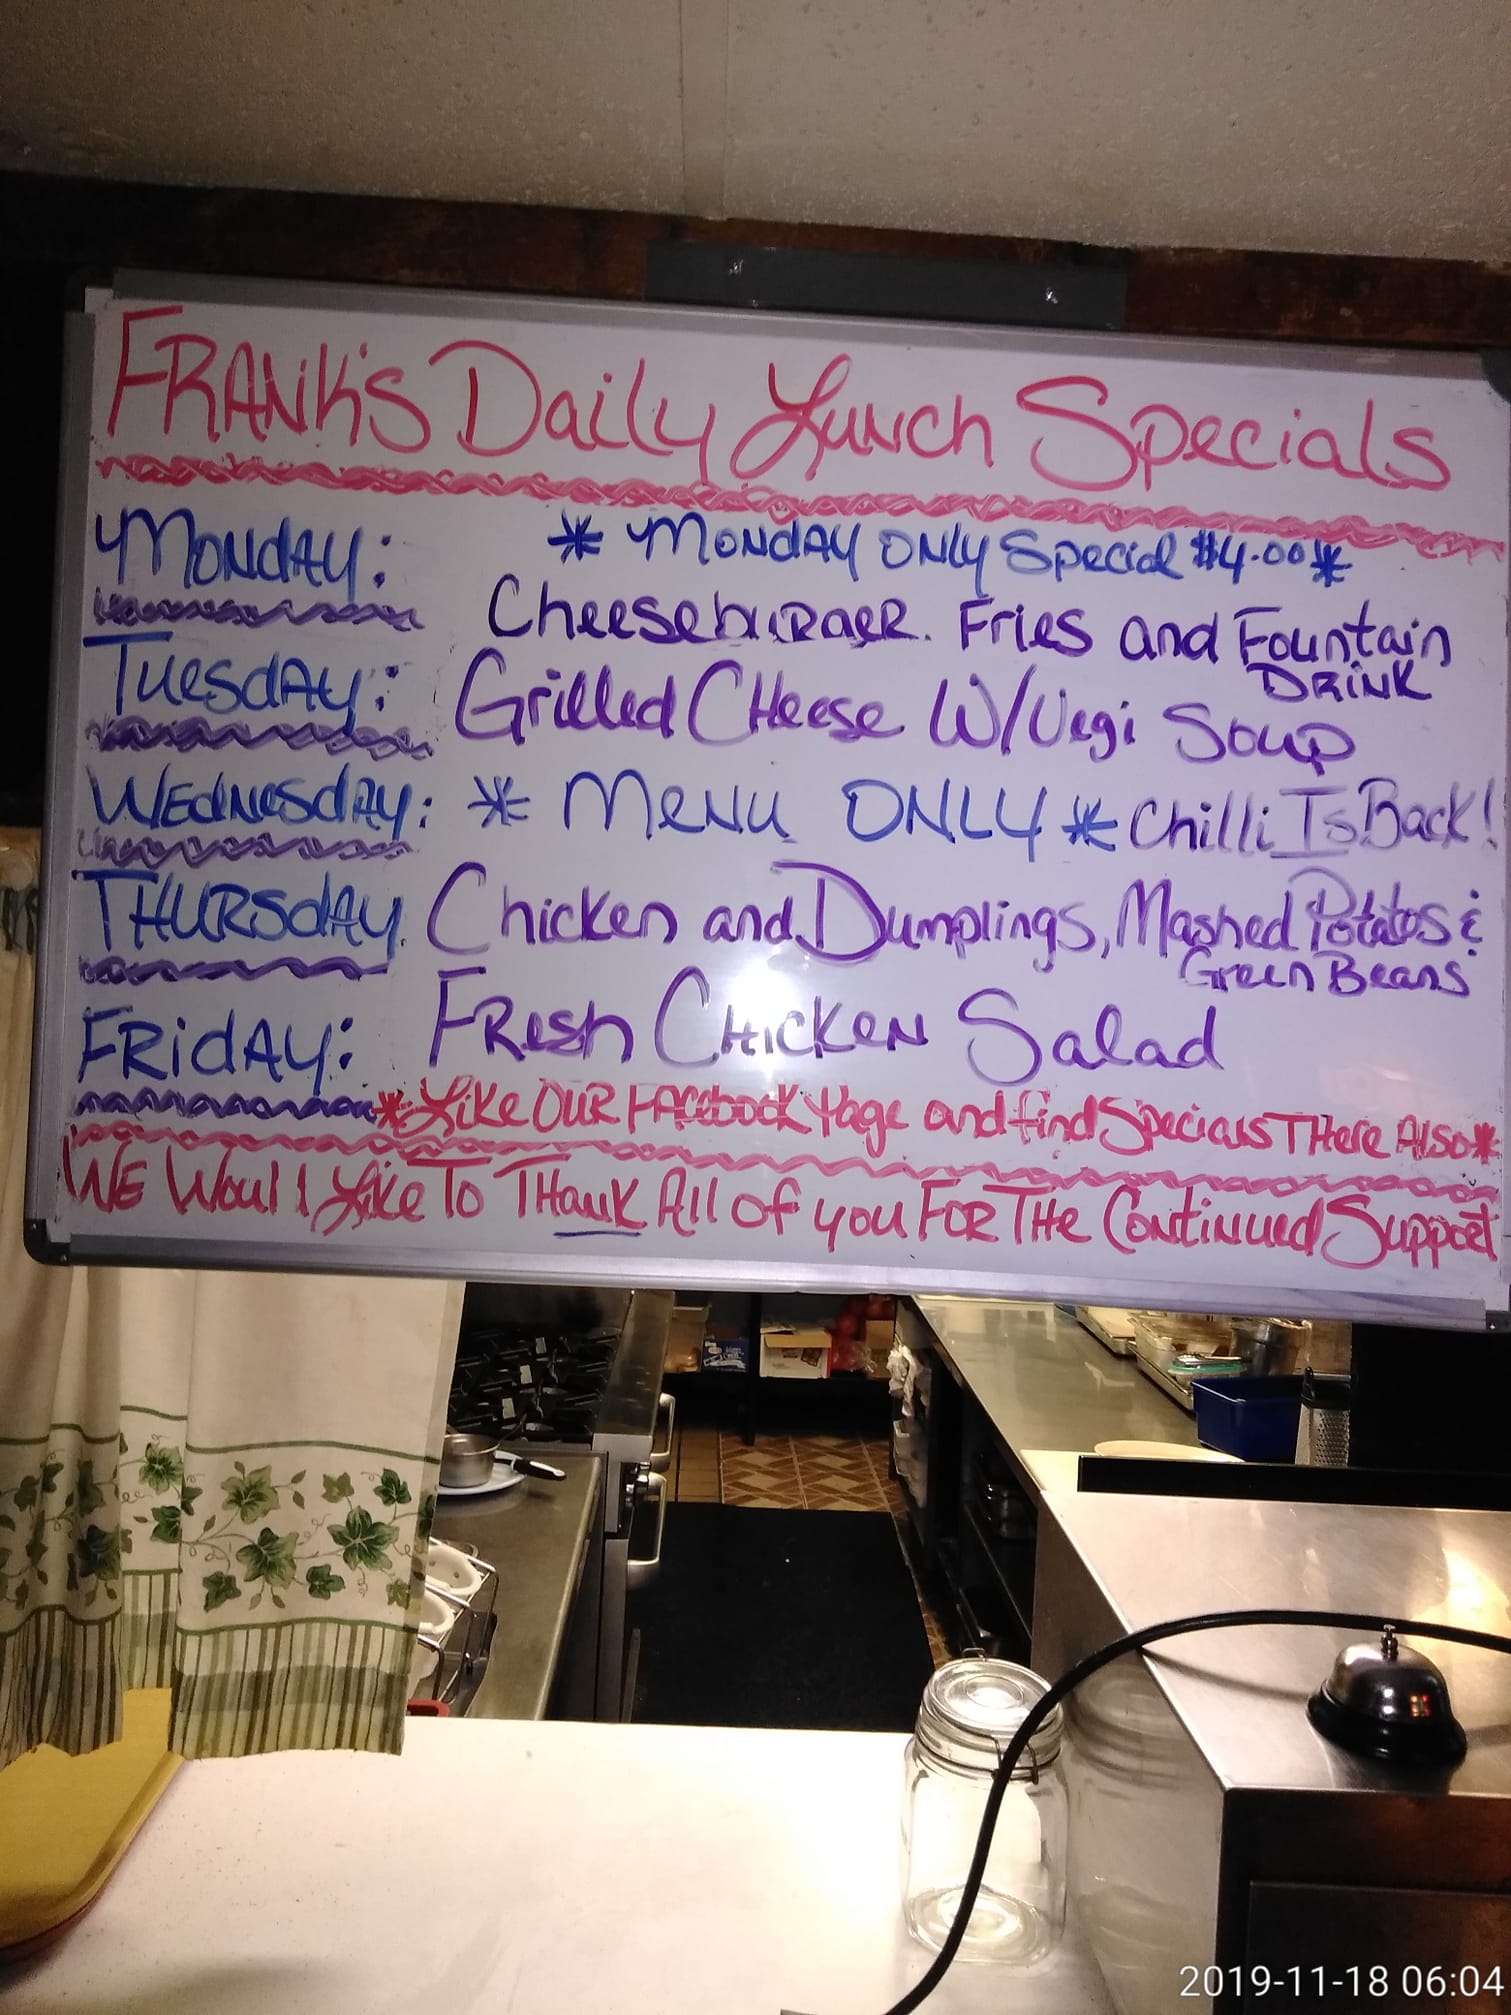 FRANK'S Daily Lunch Specials
Monday: * Monday ONLY Special $4.00 *
Cheeseburger. Fries and Fountain
DRINK
Tuesday: Grilled Cheese W/Vegi Soup
Wednesday: * Menu ONLY * Chilli Is Back!
THURSday. Chicken and Dumplings, Mashed Potatos &
Green Beans
FRiday: Fresh Chicken Salad
* Like OUR Facebook Page and find Specials There Also *
WE Would Like To Thank All of you FOR The Continued Support
2019-11-18 06:04